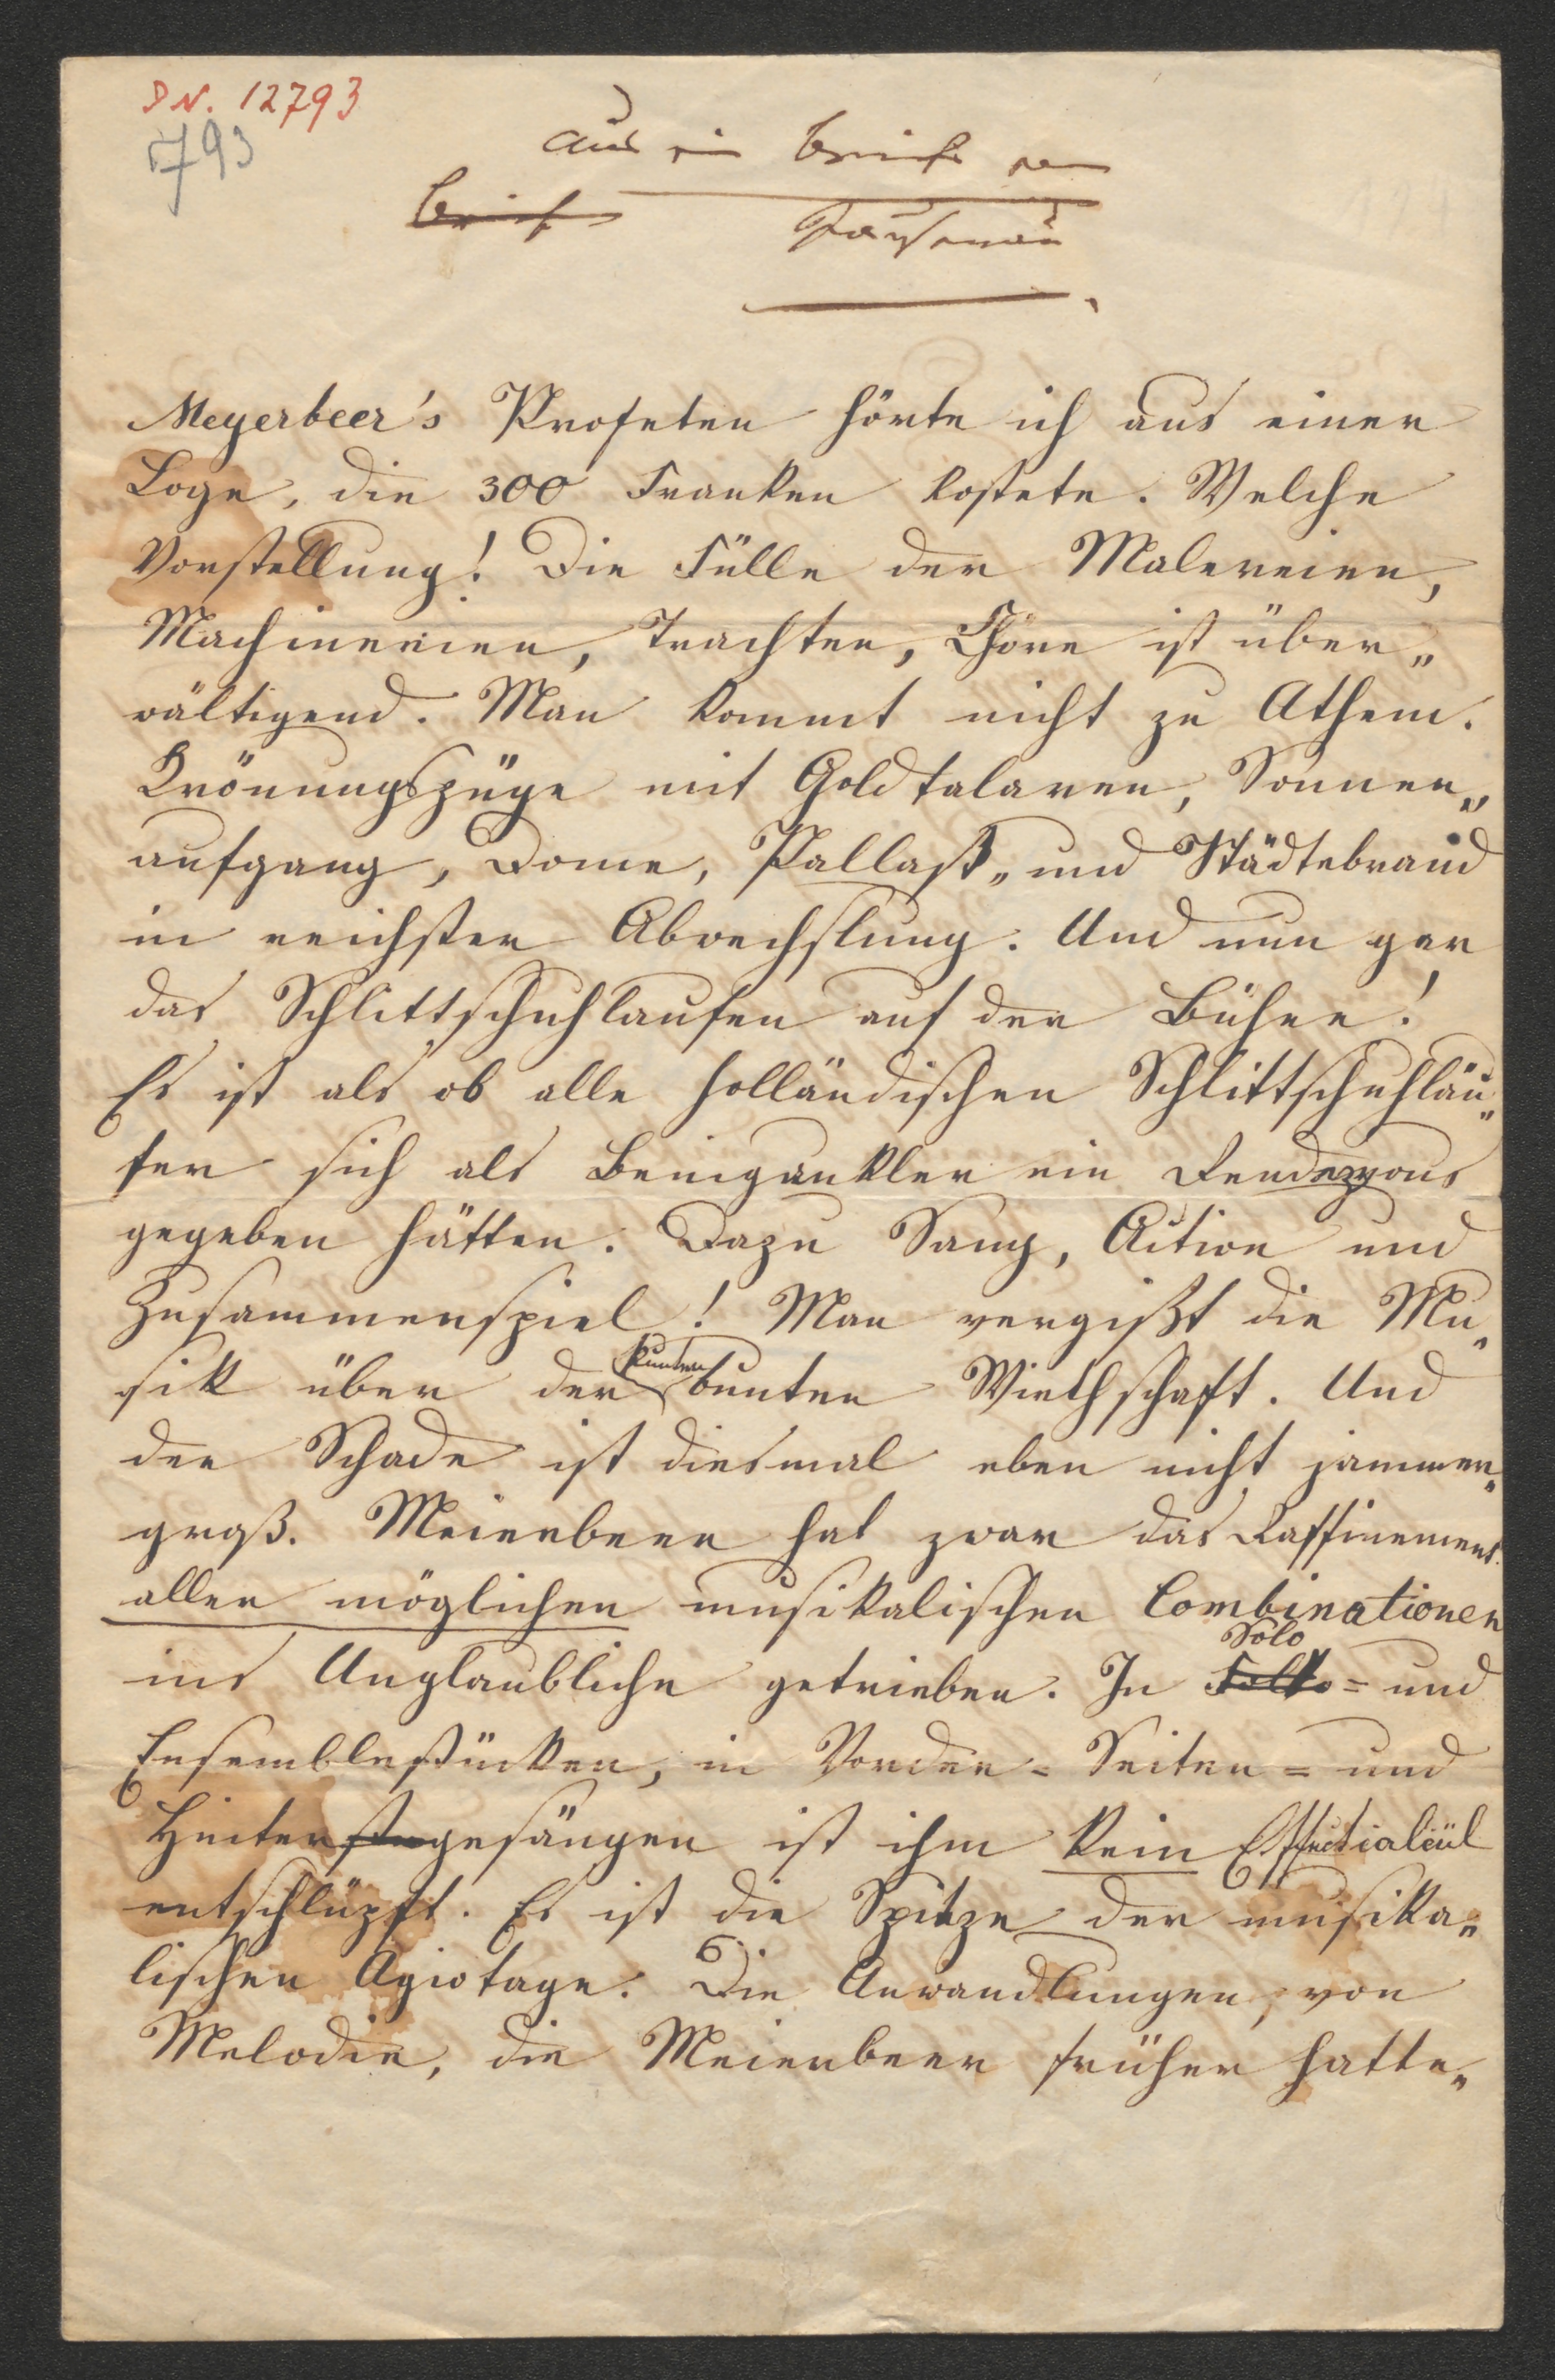 DN. 12793
793
Aus ein Briefe von
Brief
Meyerbeer's Profeten hörte ich aus einer
Loge, die 300 Franken kostete. Welche
Vorstellung! Die Fülle der Malereien,
Machinerien, Trachten, Chöre ist über„
wältigend. Man kommt nicht zu Athem.
Krönungszüge mit Goldtalaren, Sonnen„
aufgang, Dome, Pallast„ und Städtebrand
in reichster Abwechslung. Und nun gar
das Schlittschuhlaufen auf der Bühne!
Es ist als ob alle holländischen Schlittschuhläu„
fer sich als Beingaukler ein Rendezvous
gegeben hätten. Dazu Sang, Action und
Zusammenspiel! Man vergißt die Mu„
sik über der kunterbunten Wirthschaft. Und
der Schade ist diesmal eben nicht jammer„
groß. Meierbeer hat zwar das Raffinement
aller möglichen musikalischen Combinationen
ins Unglaubliche getrieben. In Solo= und
Ensemblestücken, in Vorder= Seiten= und
Hintergesängen ist ihm kein Effectcalcül
entschlüpft. Es ist die Spitze der musika„
lischen Agiotage. Die Anwandlungen, von
Melodie, die Meierbeer früher hatte„